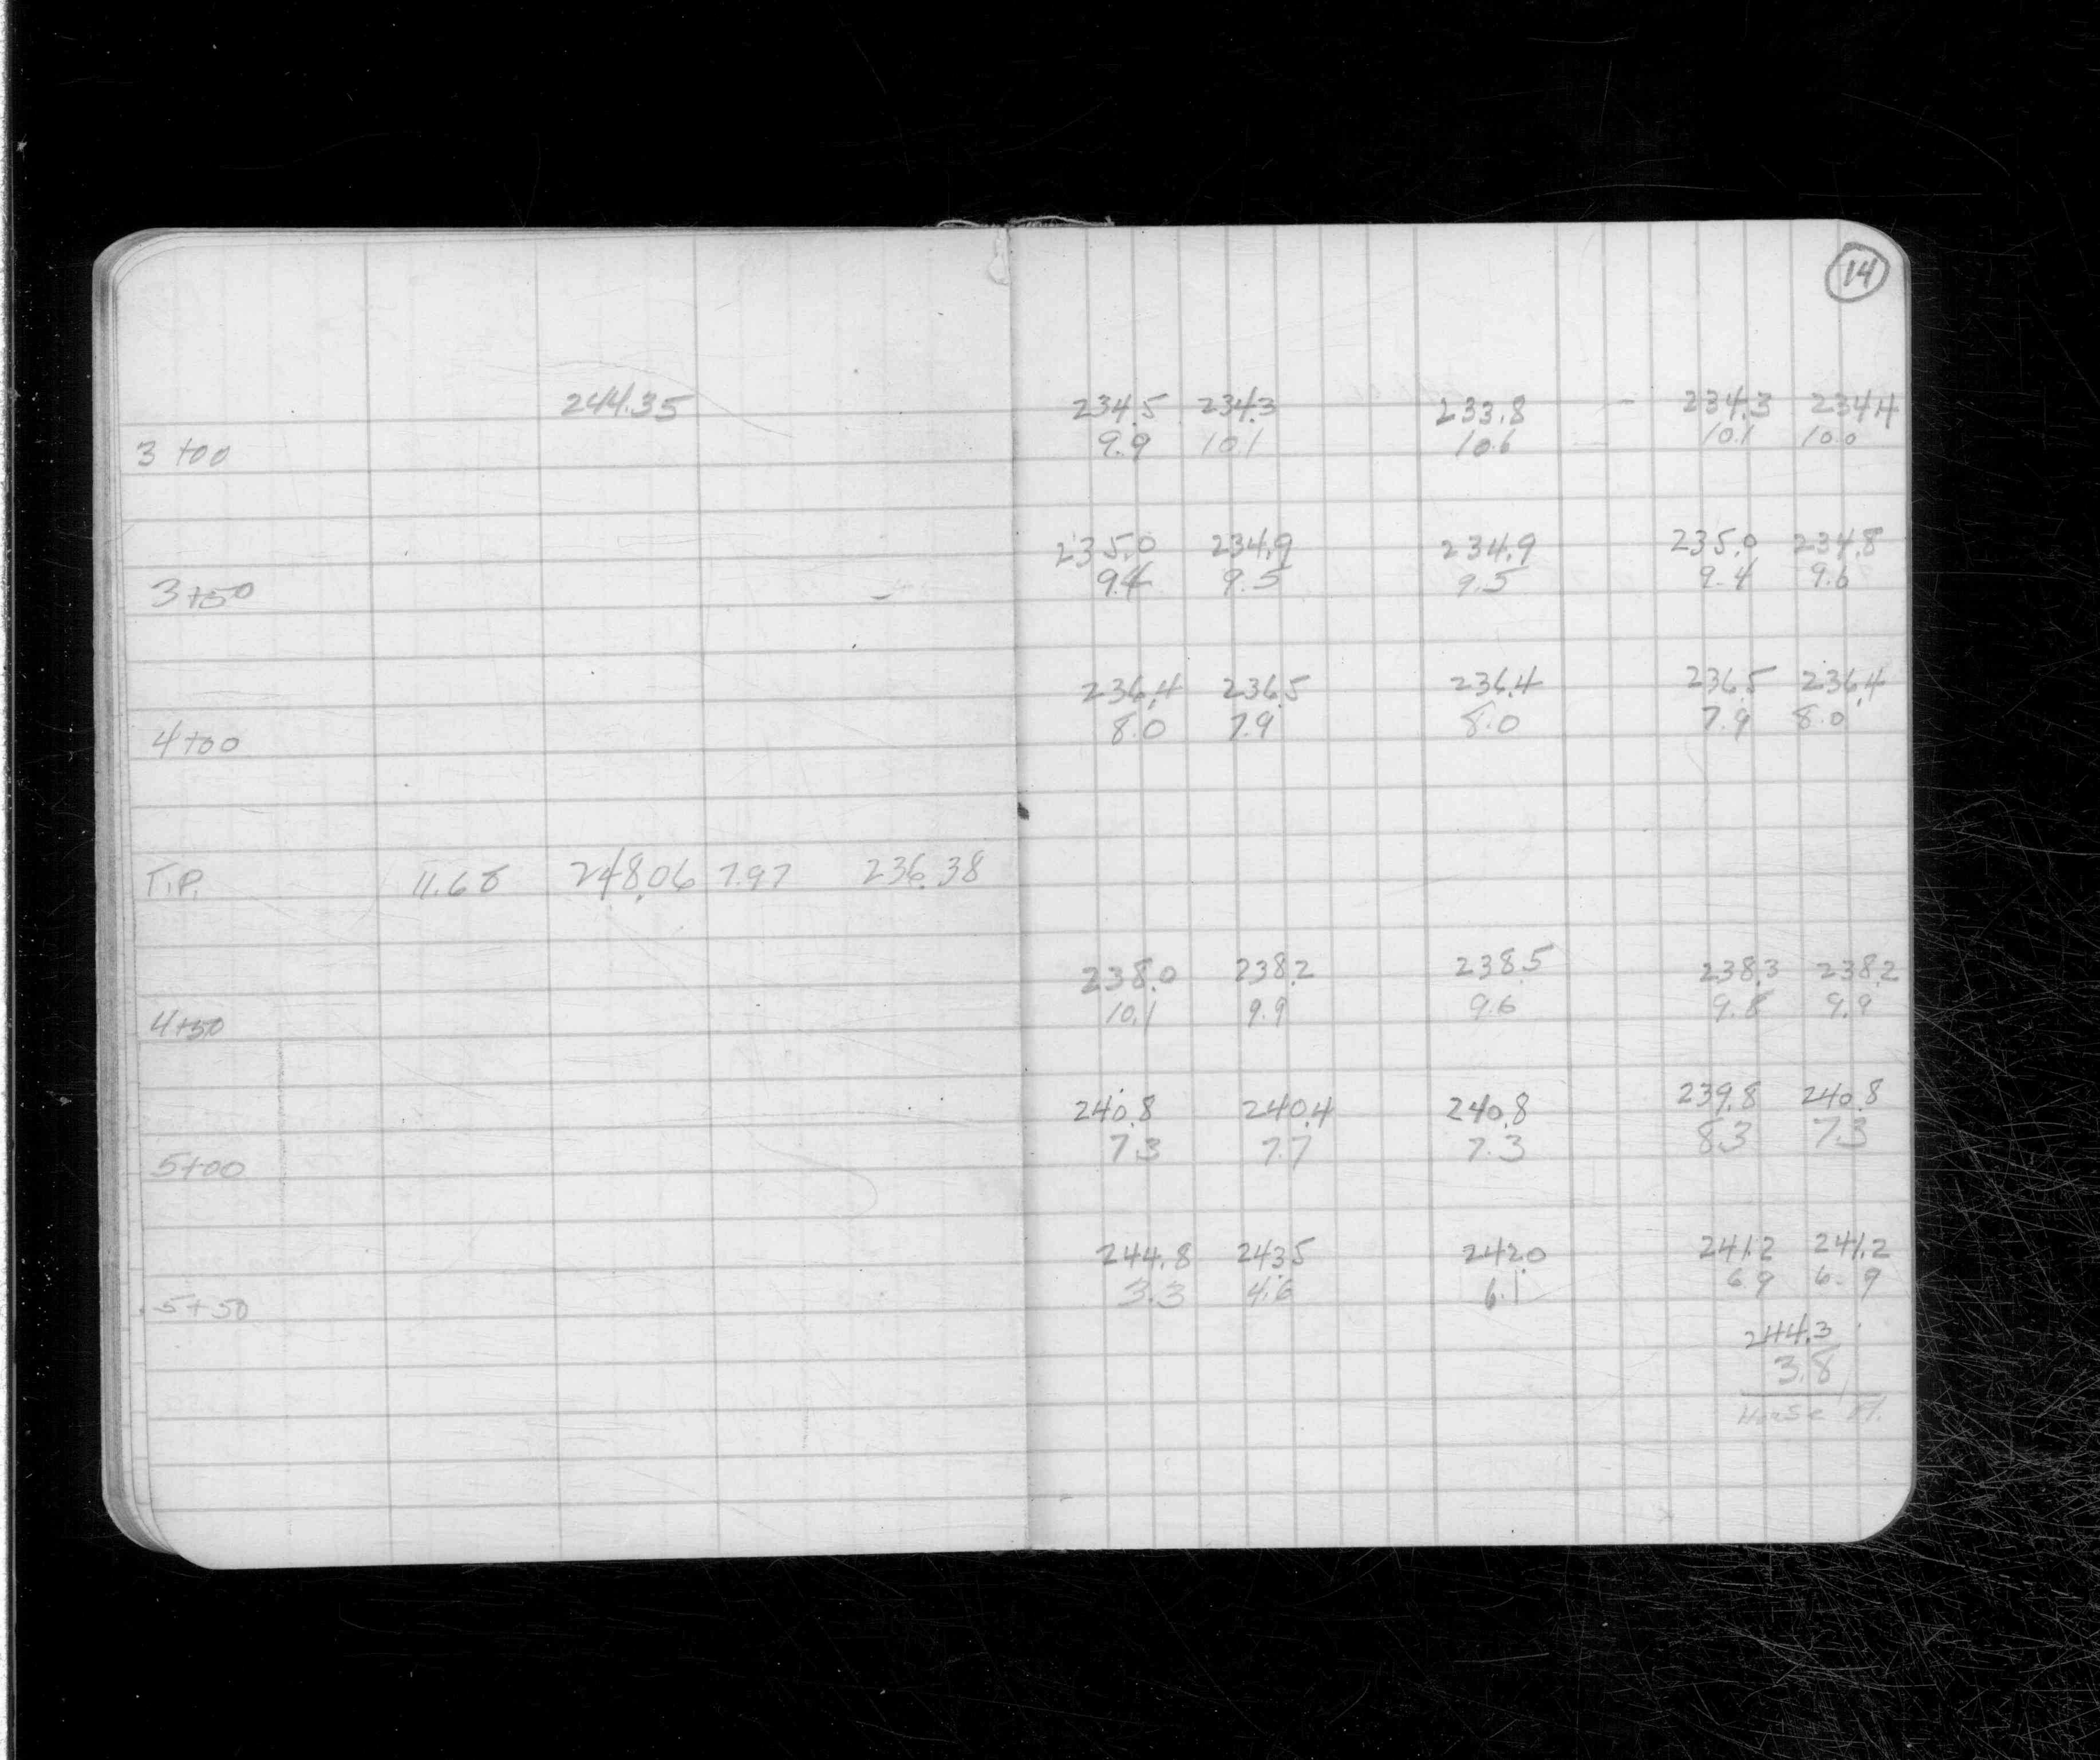 14
244.35 234.5 234.3 233.8 234.3 234.4
3+00 9.9 10.1 10.6 10.1 10.0
235.0 234.9 234.9 235.0 234.8
3+50 9.4 9.5 9.5 9.4 9.6
236.4 236.5 236.4 236.5 236.4
4+00 8.0 7.9 8.0 7.9 8.0
T.P. 11.68 248.06 7.97 236.38
238.0 238.2 238.5 238.3 238.2
4+50 10.1 9.9 9.6 9.8 9.9
240.8 240.4 240.8 239.8 240.8
5+00 7.3 7.7 7.3 8.3 7.3
244.8 243.5 242.0 241.2 241.2
5+50 3.3 4.6 6.1 6.9 6.9
244.3
3.8
House